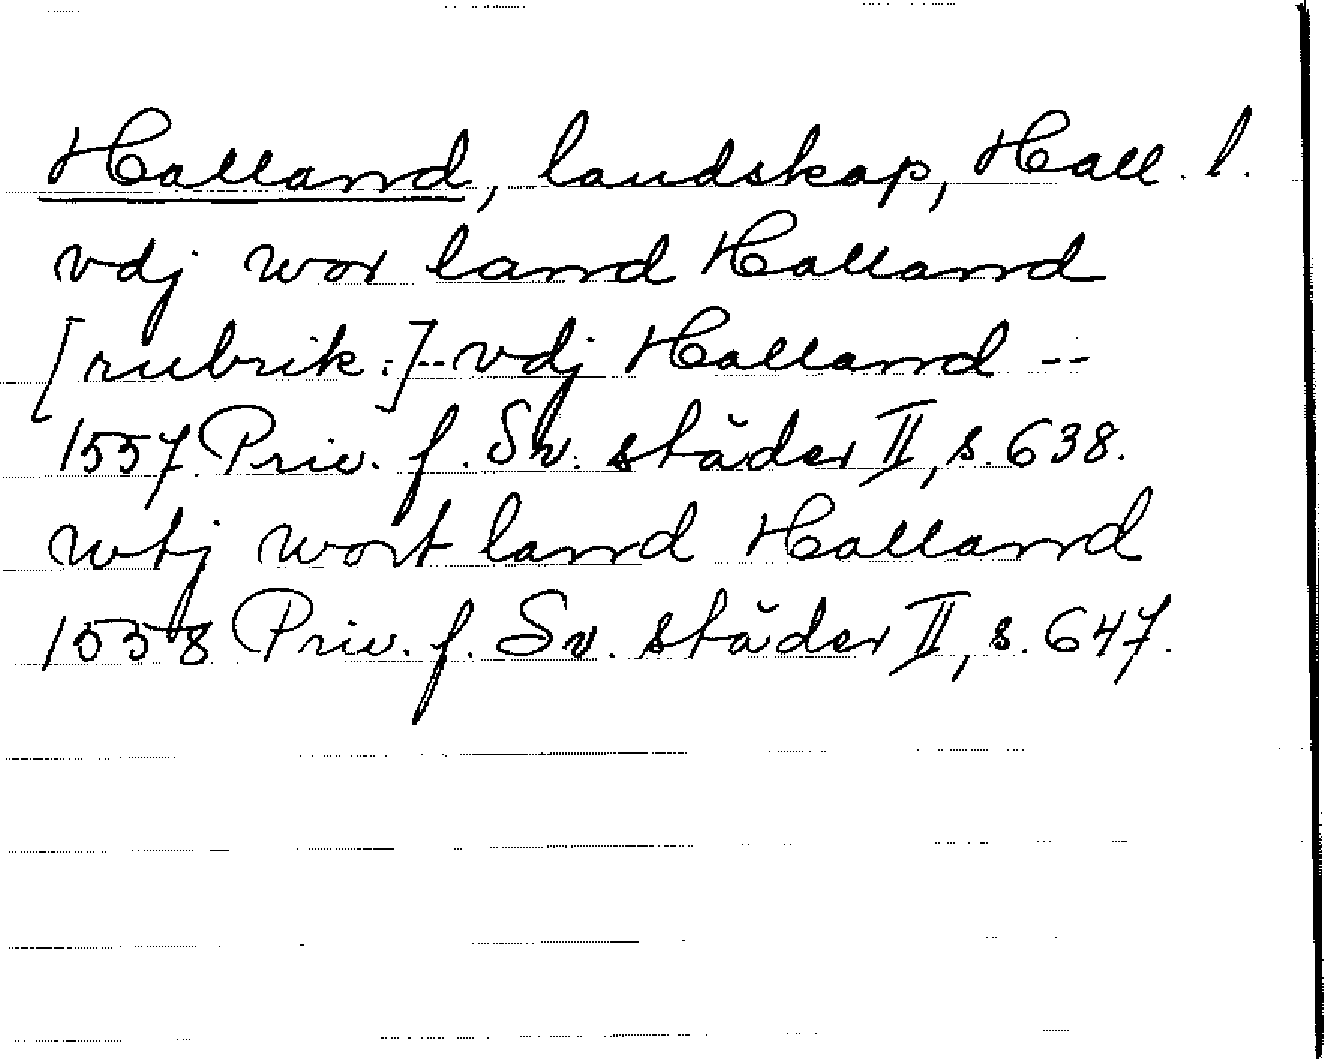 Halland, landskap, Hall. l.
vdj wor land Halland
[rubrik:]-- vdj Halland --
1557 Priv. f. Sv. städer II, s. 638.
wtj wort land Halland
1558 Priv. f. Sv. städer II, s. 647.